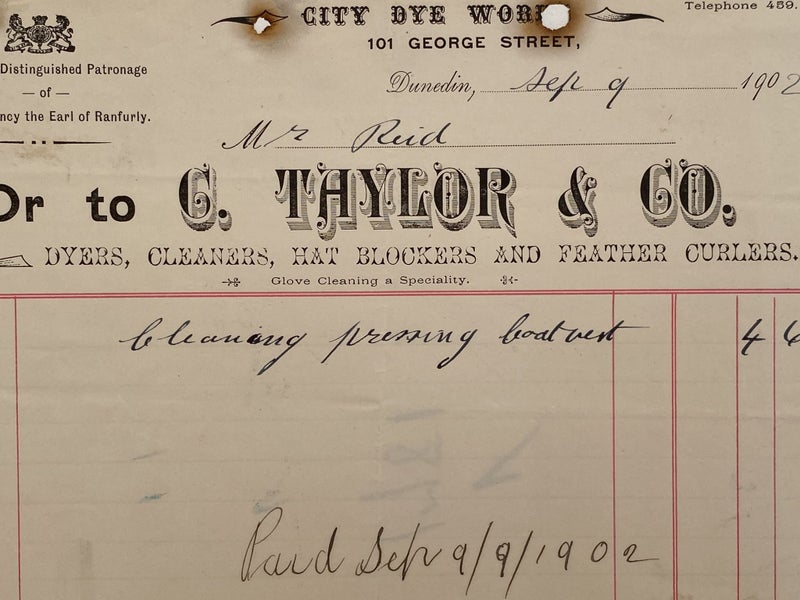 CITY DYE WOR
Telephone 489.
101 GEORGE STREET,
Distinguished Patronage
— of —
ncy the Earl of Ranfurly.
Dunedin, Sep 9 1902
Mr Reid
Dr to C. TAYLOR & CO.
DYERS, CLEANERS, HAT BLOCKERS AND FEATHER CURLERS.
Glove Cleaning a Speciality.
Cleaning pressing Coat vest 4 6
Paid Sep 9/9/1902